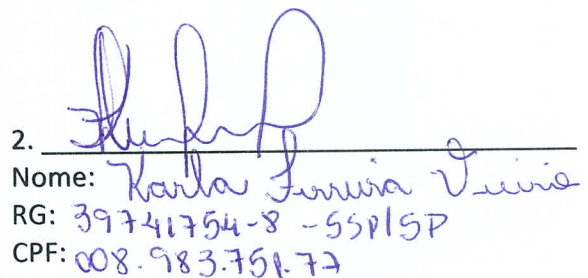 2.
Nome: Karla Ferreira Vieira
RG: 39741754-8 -SSP/SP
CPF: 008.983.751.77